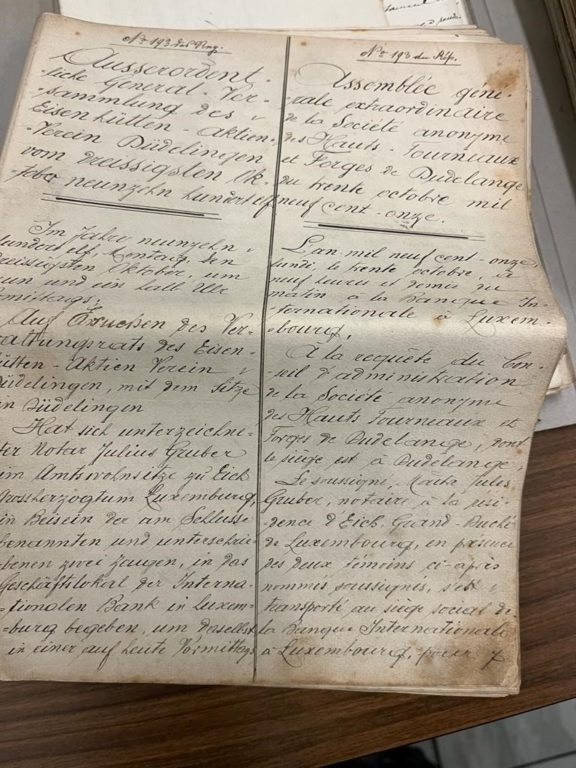 No 193 des Reg.
Ausserordent-
liche General-Ver-
sammlung des
Eisenhütten-Aktien-
Verein Düdelingen
vom dreissigsten Ok-
tober neunzehn hundert elf
Im Jahre neunzehn
hundert elf, Montag, den
dreissigsten Oktober, um
neun und ein halb Uhr
Vormittags,
Auf Ersuchen des Ver-
waltungsrats des Eisen-
hütten-Aktien Verein
Düdelingen, mit dem Sitze
in Düdelingen
Hat sich unterzeichne-
ter Notar Julius Gruber
im Amtswohnsitze zu Eich
Grossherzogtum Luxemburg,
in Beisein der am Schlusse
benannten und unterschrie-
benen zwei Zeugen, in das
Geschäftslokal der Interna-
tionalen Bank in Luxem-
burg begeben, um daselbst
in einer auf heute Vormittags
No 193 du Rép.
Assemblée géné-
rale extraordinaire
de la Société anonyme
des Hauts-Fourneaux
et Forges de Dudelange
du trente octobre mil
neuf cent-onze.
L'an mil neuf cent-onze,
lundi, le trente octobre, à
neuf heures et demie du
matin à la Banque In-
ternationale à Luxem-
bourg,
À la requête du Con-
seil d'administration
de la Société anonyme
des Hauts Fourneaux et
Forges de Dudelange, dont
le siège est à Dudelange,
Le soussigné, Maître Jules
Gruber, notaire à la rési-
dence d'Eich, Grand-Duché
de Luxembourg, en présence
des deux témoins ci-après
nommés soussignés, s'est
transporté au siège social de
la Banque Internationale
à Luxembourg, pour y